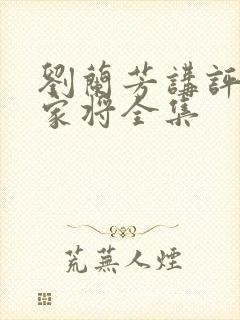 劉蘭芳講評
家將全集
荒蕪人煙